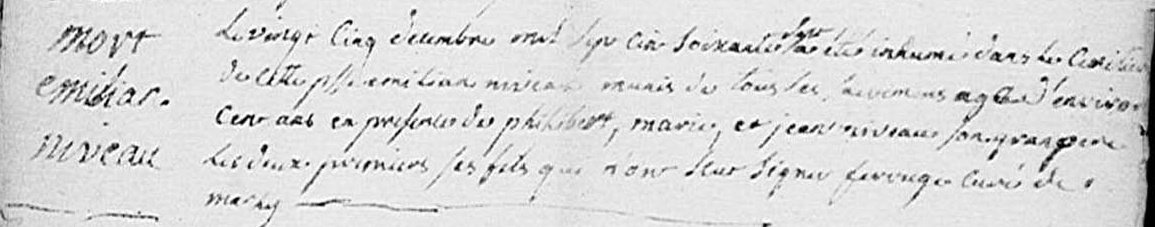 mort
emilian
niveau
Le vingt cinq decembre mil sept cent soixante sept a été inhumé dans le cimetiere
de cette psse emilian niveau munis de tous les sacremens agé d'environ
cent ans en presence de philibert, marie, et jean niveau son grand pere
Les deux premiers ses fils qui n'ont sçut signer ferrage curé de
marly